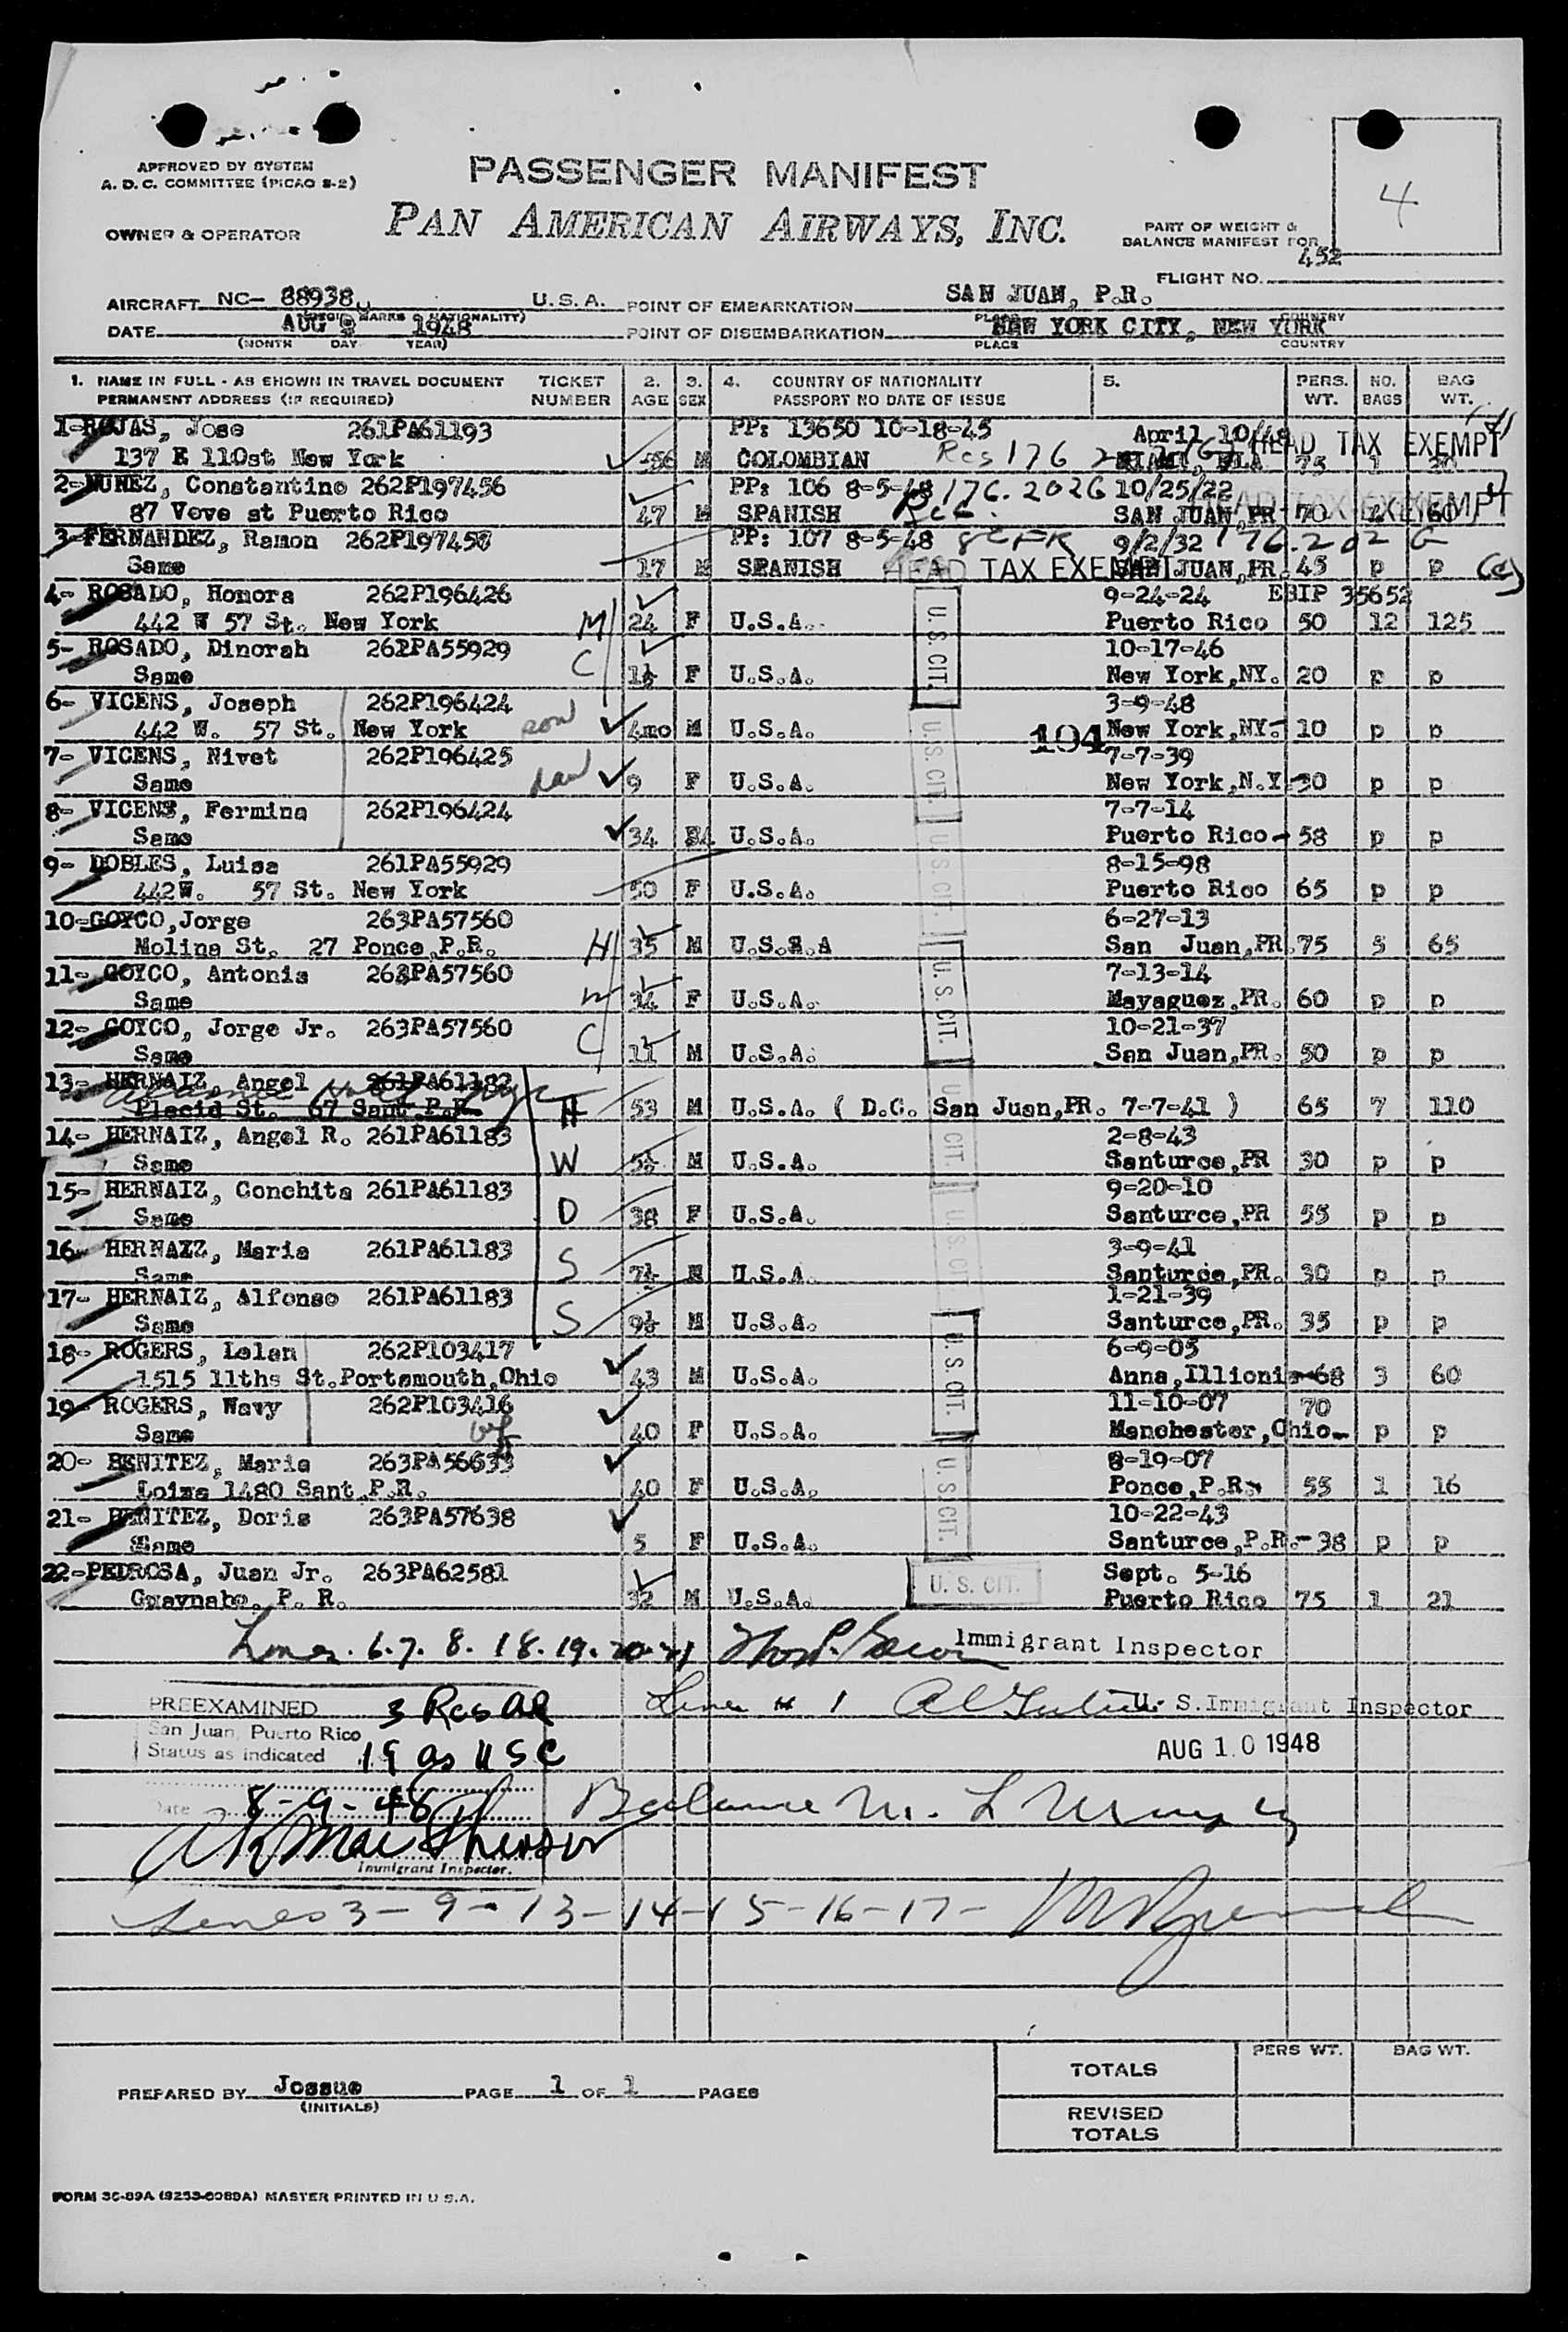 APPROVED BY SYSTEM
A. D. C. COMMITTEE (PICAO S-2)
PASSENGER MANIFEST
4
OWNER & OPERATOR
PAN AMERICAN AIRWAYS, INC.
PART OF WEIGHT &
BALANCE MANIFEST FOR
452
FLIGHT NO.
AIRCRAFT NC- 88938 U.S.A. POINT OF EMBARKATION SAN JUAN, P.R.
MARKS NATIONALITY) PLACE COUNTRY
DATE AUG 9 1948 POINT OF DISEMBARKATION NEW YORK CITY, NEW YORK
(MONTH DAY YEAR) PLACE COUNTRY
1. NAME IN FULL - AS SHOWN IN TRAVEL DOCUMENT TICKET 2. 3. 4. COUNTRY OF NATIONALITY 5. PERS. NO. BAG
PERMANENT ADDRESS (IF REQUIRED) NUMBER AGE SEX PASSPORT NO DATE OF ISSUE WT. BAGS WT.
1-ROJAS, Jose 261PA61193 PP: 13650 10-18-45 April 10/48 HEAD TAX EXEMPT
137 E 110st New York 56 M COLOMBIAN Res 176 MIAMI, FLA 75 1 20
2-NUNEZ, Constantino 262P197456 PP: 106 8-5-48 176.202G 10/25/22 HEAD TAX EXEMPT
87 Veve st Puerto Rico 47 M SPANISH Rec. SAN JUAN,PR 70 60
3-FERNANDEZ, Ramon 262P197458 PP: 107 8-5-48 9/2/32 176.202 G
Same 17 M SPANISH HEAD TAX EXEMPT SAN JUAN,PR. 45 p p (c)
4- ROSADO, Honora 262P196426 9-24-24 EBIP 35652
442 W 57 St. New York M 24 F U.S.A. U.S. CIT. Puerto Rico 50 12 125
5- ROSADO, Dinorah 262PA55929 10-17-46
Same C 1½ F U.S.A. New York,NY. 20 p p
6- VICENS, Joseph 262P196424 3-9-48
442 W. 57 St. New York son 4mo M U.S.A. U.S. CIT. 194 New York,NY.- 10 p p
7- VICENS, Nivet 262P196425 7-7-39
Same dau 9 F U.S.A. New York,N.Y-30 p p
8- VICENS, Fermina 262P196424 7-7-14
Same 34 U.S.A. U.S. CIT. Puerto Rico- 58 p p
9- DOBLES, Luisa 261PA55929 8-15-98
442W. 57 St. New York 50 F U.S.A. Puerto Rico 65 p p
10-GOYCO,Jorge 263PA57560 6-27-13
Molina St. 27 Ponce,P.R. H 35 M U.S.S.A U.S. CIT. San Juan,PR. 75 5 65
11- GOYCO, Antonia 263PA57560 7-13-14
Same W 34 F U.S.A. Mayaguez,PR. 60 p p
12- GOYCO, Jorge Jr. 263PA57560 10-21-37
Same C 11 M U.S.A. San Juan,PR. 50 p p
13- HERNAIZ, Angel 261PA61183
Placid St. 67 Sant.P.R. H 53 M U.S.A. ( D.C. San Juan,PR. 7-7-41 ) 65 7 110
14- HERNAIZ, Angel R. 261PA61183 U.S. CIT. 2-8-43
Same W 5½ M U.S.A. Santurce,PR 30 p p
15- HERNAIZ, Conchita 261PA61183 9-20-10
Same D 38 F U.S.A. Santurce,PR 55 p p
16- HERNAIZ, Maria 261PA61183 U.S. CIT. 3-9-41
Same S 7½ U.S.A. Santurce,PR. 30 p p
17- HERNAIZ, Alfonso 261PA61183 1-21-39
Same S 9½ M U.S.A. Santurce,PR. 35 p p
18- ROGERS, Lelan 262P103417 6-9-05
1515 11ths St.Portsmouth,Ohio 43 M U.S.A. U.S. CIT. Anna,Illionis-68 3 60
19- ROGERS, Navy 262P103416 11-10-07 70
Same wf 40 F U.S.A. Manchester,Ohio- p p
20- BENITEZ, Maria 263PA56633 8-19-07
Loiza 1480 Sant.P.R. 40 F U.S.A. U.S. CIT. Ponce,P.R- 55 1 16
21- BENITEZ, Doris 263PA57638 10-22-43
Same 5 F U.S.A. Santurce,P.R.-38 p p
22-PEDROSA, Juan Jr. 263PA62581 Sept. 5-16
Guaynabo. P. R. 32 M U.S.A. U. S. CIT. Puerto Rico 75 1 21
Lines. 6.7. 8. 18. 19. 20-21 Immigrant Inspector
PREEXAMINED 3 Res al Line # 1 U. S. Immigrant Inspector
San Juan, Puerto Rico
Status as indicated 19 as USC AUG 10 1948
Date 8-9-48 Balance
Immigrant Inspector.
Lines 3-9-13-14-15-16-17-
TOTALS PERS WT. BAG WT.
PREPARED BY Jossue PAGE 1 OF 1 PAGES
(INITIALS)
REVISED
TOTALS
FORM 36-89A (9253-0089A) MASTER PRINTED IN U.S.A.